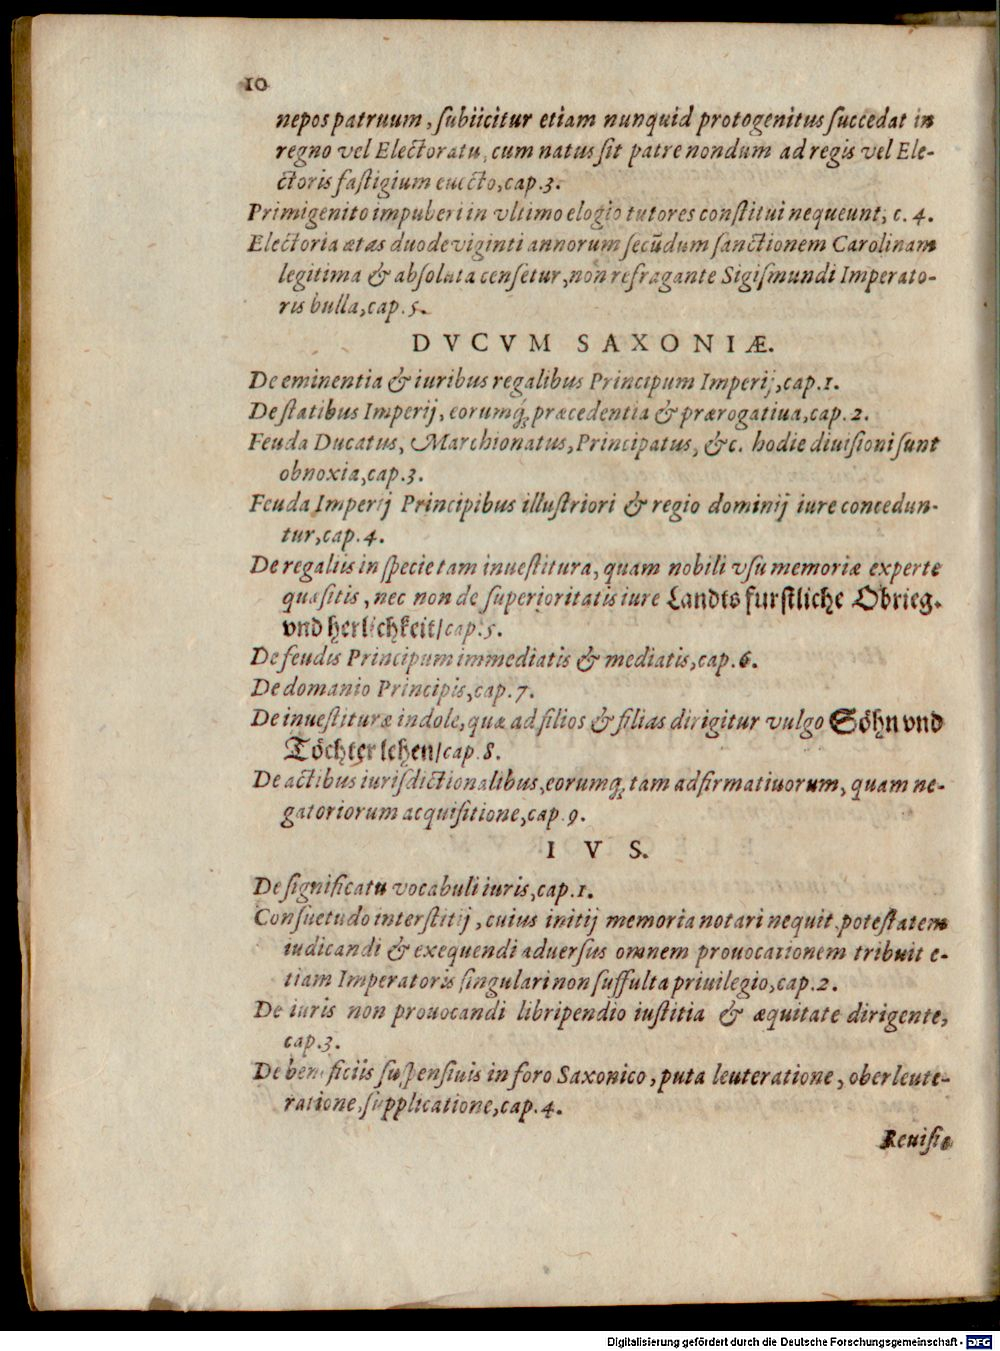 10
nepos patruum, ſubiicitur etiam nunquid protogenitus ſuccedat in
regno vel Electoratu, cum natus ſit patre nondum ad regis vel Ele-
ctoris faſtigium euecto, cap. 3.
Primigenito impuberi in vltimo elogio tutores conſtitui nequeunt, c. 4.
Electoria ætas duodeviginti annorum ſecūdum ſanctionem Carolinam
legitima & abſoluta cenſetur, non refragante Sigiſmundi Imperato-
ris bulla, cap. 5.
DVCVM SAXONIÆ.
De eminentia & iuribus regalibus Principum Imperij, cap. 1.
De ſtatibus Imperij, eorumq́; præcedentia & prærogatiua, cap. 2.
Feuda Ducatus, Marchionatus, Principatus, &c. hodie diuiſioni ſunt
obnoxia, cap. 3.
Feuda Imperij Principibus illuſtriori & regio dominij iure concedun-
tur, cap. 4.
De regaliis in ſpecie tam inueſtitura, quam nobili vſu memoriæ experte
quæſitis, nec non de ſuperioritatis iure Landts furſtliche Obrieg.
vnd herlichkeit/ cap. 5.
De feudis Principum immediatis & mediatis, cap. 6.
De domanio Principis, cap. 7.
De inueſtituræ indole, quæ ad filios & filias dirigitur vulgo Söhn vnd
Töchter lehen/ cap. 8.
De actibus iurisdictionalibus, eorumq; tam adfirmatiuorum, quam ne-
gatoriorum acquiſitione, cap. 9.
IVS.
De ſignificatu vocabuli iuris, cap. 1.
Conſuetudo interſtitij, cuius initij memoria notari nequit, poteſtatem
iudicandi & exequendi aduerſus omnem prouocationem tribuit e-
tiam Imperatoris ſingulari non ſuffulta priuilegio, cap. 2.
De iuris non prouocandi libripendio iuſtitia & æquitate dirigente,
cap. 3.
De beneficiis ſuſpenſiuis in foro Saxonico, puta leuteratione, oberleute-
ratione, ſupplicatione, cap. 4.
Reuiſio
Digitalisierung gefördert durch die Deutsche Forschungsgemeinschaft - DFG